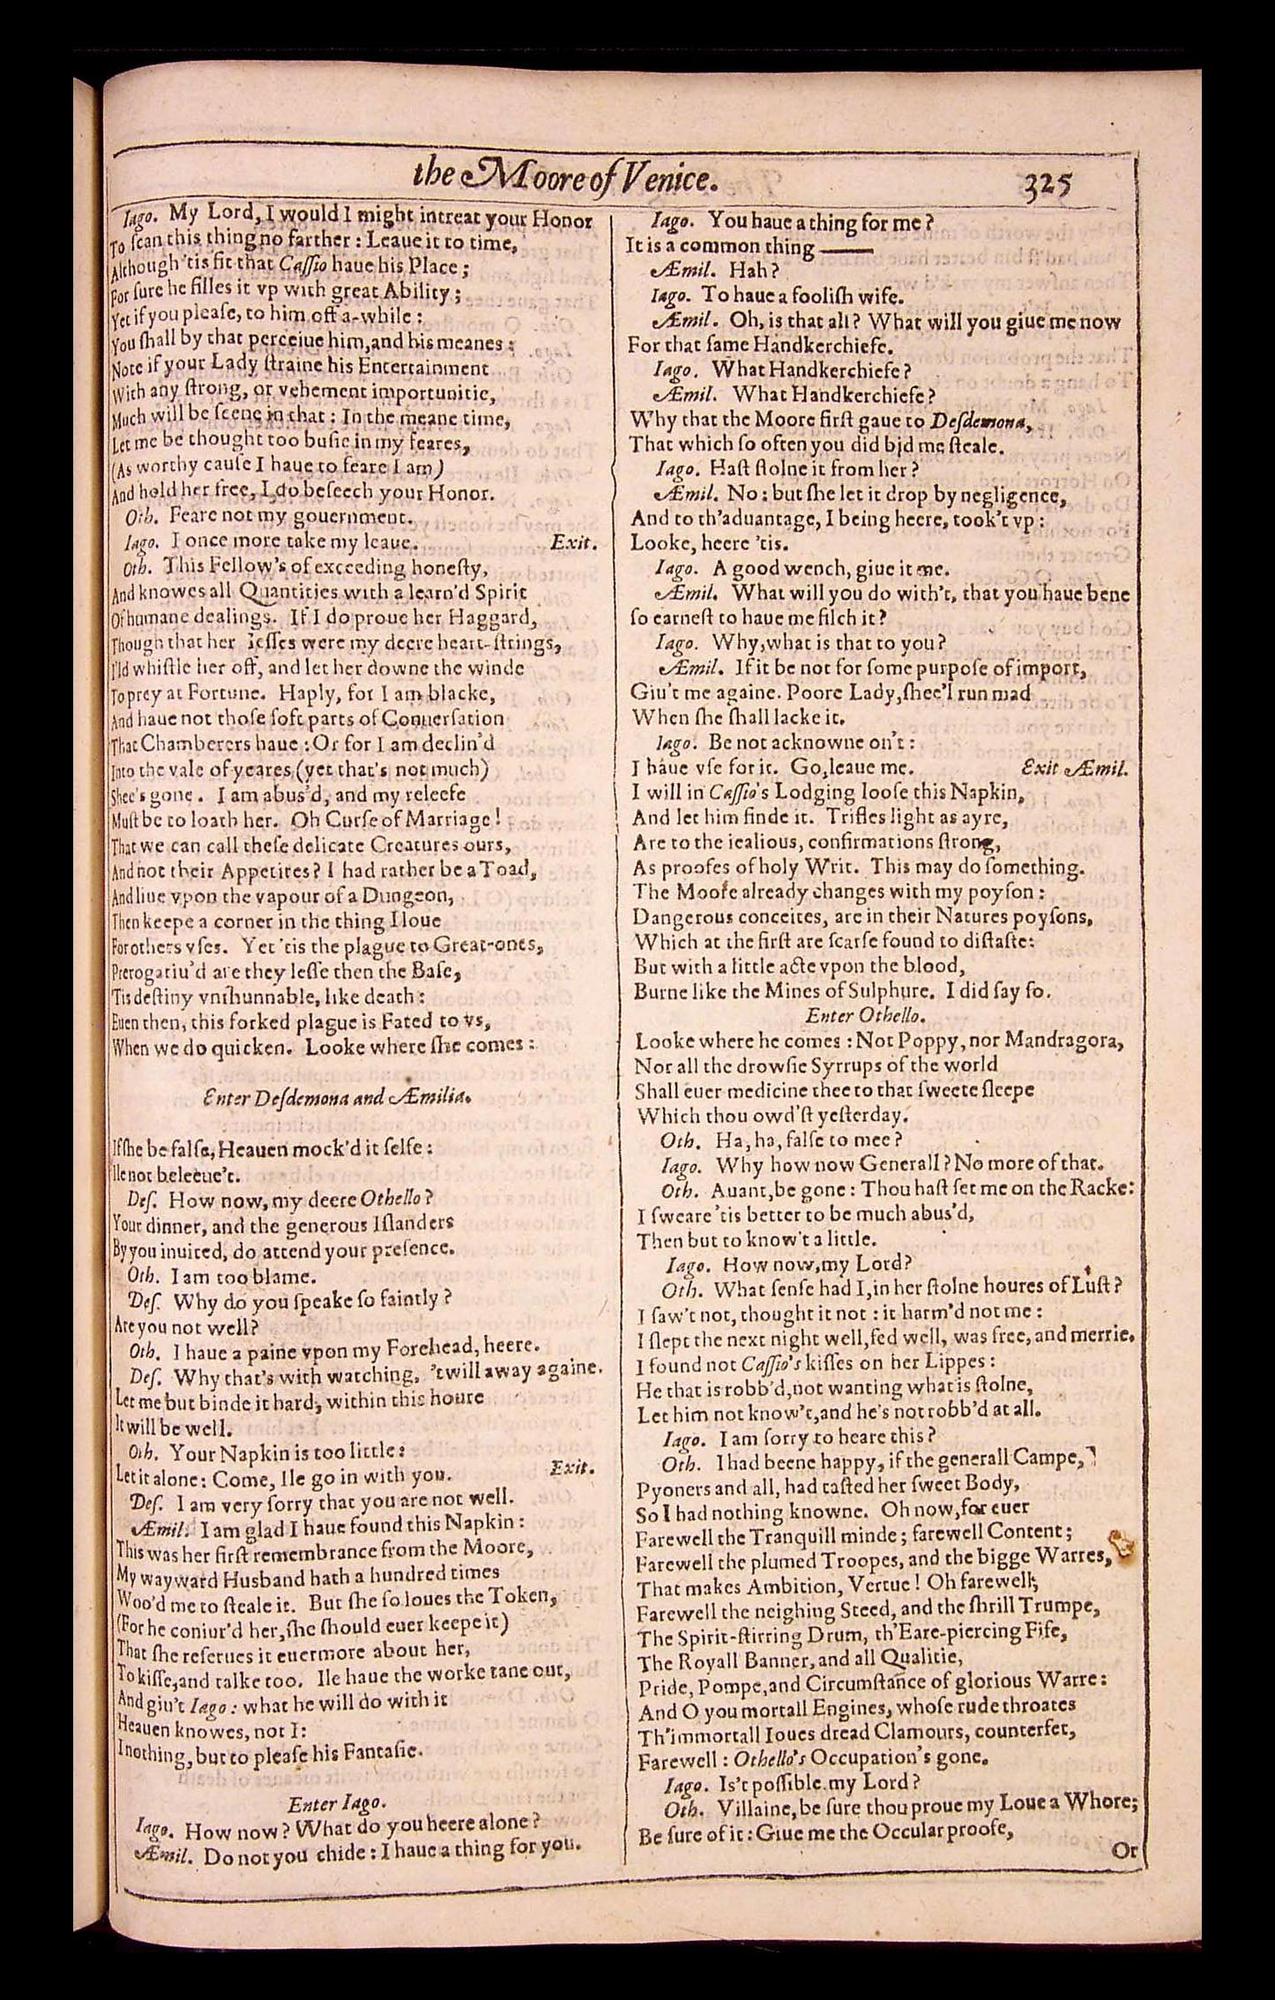 the Moore of Venice.
325
Iago. My Lord, I would I might intreat your Honor
To ſcan this thing no farther : Leaue it to time,
Although 'tis fit that Caſſio haue his Place ;
For ſure he filles it vp with great Ability ;
Yet if you pleaſe, to him off a-while :
You ſhall by that perceiue him, and his meanes :
Note if your Lady ſtraine his Entertainment
With any ſtrong, or vehement importunitie,
Much will be ſeene in that : In the meane time,
Let me be thought too buſie in my feares,
(As worthy cauſe I haue to feare I am)
And hold her free, I do beſeech your Honor.
Oth. Feare not my gouernment.
Iago. I once more take my leaue. Exit.
Oth. This Fellow's of exceeding honeſty,
And knowes all Quantities with a learn'd Spirit
Of humane dealings. If I do proue her Haggard,
Though that her Ieſſes were my deere heart-ſtrings,
I'ld whiſtle her off, and let her downe the winde
To prey at Fortune. Haply, for I am blacke,
And haue not thoſe ſoft parts of Conuerſation
That Chamberers haue : Or for I am declin'd
Into the vale of yeares (yet that's not much)
Shee's gone. I am abus'd, and my releefe
Muſt be to loath her. Oh Curſe of Marriage !
That we can call theſe delicate Creatures ours,
And not their Appetites ? I had rather be a Toad,
And liue vpon the vapour of a Dungeon,
Then keepe a corner in the thing I loue
For others vſes. Yet 'tis the plague to Great-ones,
Prerogatiu'd are they leſſe then the Baſe,
'Tis deſtiny vnſhunnable, like death :
Euen then, this forked plague is Fated to vs,
When we do quicken. Looke where ſhe comes :
Enter Deſdemona and Æmilia.
If ſhe be falſe, Heauen mock'd it ſelfe :
Ile not beleeue't.
Deſ. How now, my deere Othello ?
Your dinner, and the generous Iſlanders
By you inuited, do attend your preſence.
Oth. I am too blame.
Deſ. Why do you ſpeake ſo faintly ?
Are you not well ?
Oth. I haue a paine vpon my Forehead, heere.
Deſ. Why that's with watching, 'twill away againe.
Let me but binde it hard, within this houre
It will be well.
Oth. Your Napkin is too little :
Let it alone : Come, Ile go in with you. Exit.
Deſ. I am very ſorry that you are not well.
Æmil. I am glad I haue found this Napkin :
This was her firſt remembrance from the Moore,
My wayward Husband hath a hundred times
Woo'd me to ſteale it. But ſhe ſo loues the Token,
(For he coniur'd her, ſhe ſhould euer keepe it)
That ſhe reſerues it euermore about her,
To kiſſe, and talke too. Ile haue the worke tane out,
And giu't Iago : what he will do with it
Heauen knowes, not I :
I nothing, but to pleaſe his Fantaſie.
Enter Iago.
Iago. How now ? What do you heere alone ?
Æmil. Do not you chide : I haue a thing for you.
Iago. You haue a thing for me ?
It is a common thing ——
Æmil. Hah ?
Iago. To haue a fooliſh wife.
Æmil. Oh, is that all ? What will you giue me now
For that ſame Handkerchiefe.
Iago. What Handkerchiefe ?
Æmil. What Handkerchiefe ?
Why that the Moore firſt gaue to Deſdemona,
That which ſo often you did bid me ſteale.
Iago. Haſt ſtolne it from her ?
Æmil. No : but ſhe let it drop by negligence,
And to th'aduantage, I being heere, took't vp :
Looke, heere 'tis.
Iago. A good wench, giue it me.
Æmil. What will you do with't, that you haue bene
ſo earneſt to haue me filch it ?
Iago. Why, what is that to you ?
Æmil. If it be not for ſome purpoſe of import,
Giu't me againe. Poore Lady, ſhee'l run mad
When ſhe ſhall lacke it.
Iago. Be not acknowne on't :
I haue vſe for it. Go, leaue me. Exit Æmil.
I will in Caſſio's Lodging looſe this Napkin,
And let him finde it. Trifles light as ayre,
Are to the iealious, confirmations ſtrong,
As proofes of holy Writ. This may do ſomething.
The Moore already changes with my poyſon :
Dangerous conceites, are in their Natures poyſons,
Which at the firſt are ſcarſe found to diſtaſte :
But with a little acte vpon the blood,
Burne like the Mines of Sulphure. I did ſay ſo.
Enter Othello.
Looke where he comes : Not Poppy, nor Mandragora,
Nor all the drowſie Syrrups of the world
Shall euer medicine thee to that ſweete ſleepe
Which thou owd'ſt yeſterday.
Oth. Ha, ha, falſe to mee ?
Iago. Why how now Generall ? No more of that.
Oth. Auant, be gone : Thou haſt ſet me on the Racke :
I ſweare 'tis better to be much abus'd,
Then but to know't a little.
Iago. How now, my Lord ?
Oth. What ſenſe had I, in her ſtolne houres of Luſt ?
I ſaw't not, thought it not : it harm'd not me :
I ſlept the next night well, fed well, was free, and merrie.
I found not Caſſio's kiſſes on her Lippes :
He that is robb'd, not wanting what is ſtolne,
Let him not know't, and he's not robb'd at all.
Iago. I am ſorry to heare this ?
Oth. I had beene happy, if the generall Campe,
Pyoners and all, had taſted her ſweet Body,
So I had nothing knowne. Oh now, for euer
Farewell the Tranquill minde ; farewell Content ;
Farewell the plumed Troopes, and the bigge Warres,
That makes Ambition, Vertue ! Oh farewell ;
Farewell the neighing Steed, and the ſhrill Trumpe,
The Spirit-ſtirring Drum, th'Eare-piercing Fife,
The Royall Banner, and all Qualitie,
Pride, Pompe, and Circumſtance of glorious Warre :
And O you mortall Engines, whoſe rude throates
Th'immortall Ioues dread Clamours, counterfet,
Farewell : Othello's Occupation's gone.
Iago. Is't poſſible my Lord ?
Oth. Villaine, be ſure thou proue my Loue a Whore ;
Be ſure of it : Giue me the Occular proofe,
Or